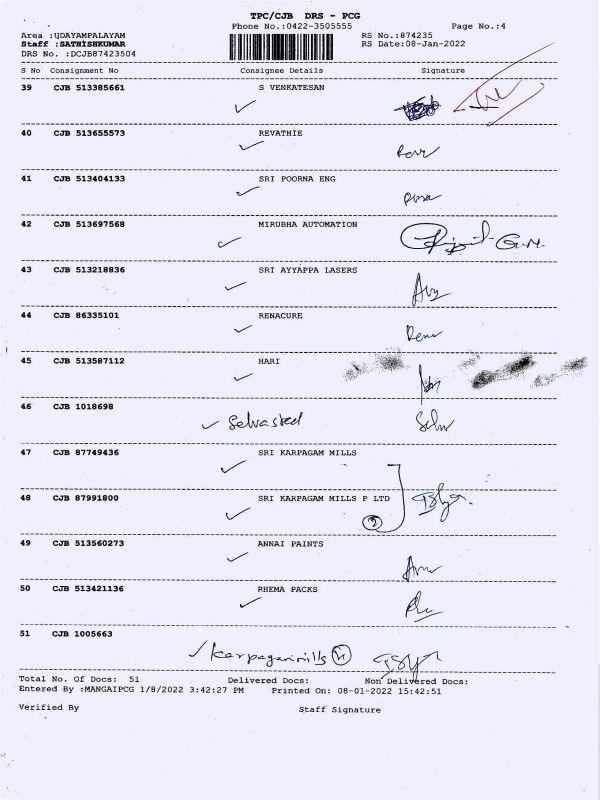 TPC/CJB DRS - PCG
Phone No.:0422-3505555 Page No.:4
Area :UDAYAMPALAYAM RS No.:874235
Staff :SATHISHKUMAR RS Date:08-Jan-2022
DRS No. :DCJB87423504
S No Consignment No Consignee Details Signature
39 CJB 513385661 S VENKATESAN
40 CJB 513655573 REVATHIE
41 CJB 513404133 SRI POORNA ENG
42 CJB 513697568 MIRUBHA AUTOMATION
43 CJB 513218836 SRI AYYAPPA LASERS
44 CJB 86335101 RENACURE
45 CJB 513587112 HARI
46 CJB 1018698
47 CJB 87749436 SRI KARPAGAM MILLS
48 CJB 87991800 SRI KARPAGAM MILLS P LTD
49 CJB 513560273 ANNAI PAINTS
50 CJB 513421136 RHEMA PACKS
51 CJB 1005663
Total No. Of Docs: 51 Delivered Docs: Non Delivered Docs:
Entered By :MANGAIPCG 1/8/2022 3:42:27 PM Printed On: 08-01-2022 15:42:51
Verified By Staff Signature